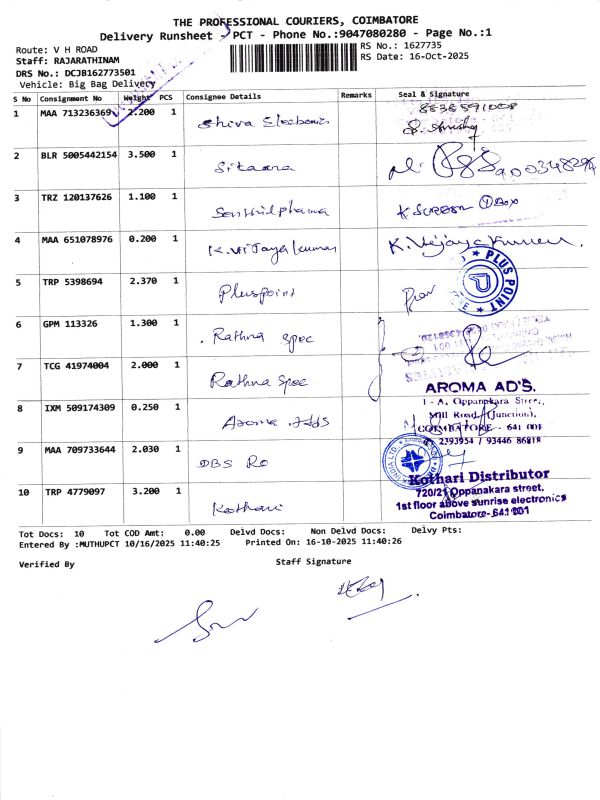 THE PROFESSIONAL COURIERS, COIMBATORE
Delivery Runsheet - PCT - Phone No.:9047080280 - Page No.:1
Route: V H ROAD
RS No.: 1627735
Staff: RAJARATHINAM
RS Date: 16-Oct-2025
DRS No.: DCJB162773501
Vehicle: Big Bag Delivery
S No Consignment No Weight PCS Consignee Details Remarks Seal & Signature
1 MAA 713236369 2.200 1 Shiva Electronics 8838591008
2 BLR 5005442154 3.500 1 Sitaara
3 TRZ 120137626 1.100 1 Senthil pharma K SURESH
4 MAA 651078976 0.200 1 K. Vijaya kumar K. Vijaya Kumar.
5 TRP 5398694 2.370 1 Pluspoint
PLUS POINT
6 GPM 113326 1.300 1 Rathna Spec
7 TCG 41974004 2.000 1 Rathna Spec
AROMA AD'S.
1 - A, Oppanakara Street,
8 IXM 509174309 0.250 1 Aroma Adds
Mill Road (Junction),
COIMBATORE - 641 001
2393954 / 93446 86818
9 MAA 709733644 2.030 1 DBS RO
Kothari Distributor
10 TRP 4779097 3.200 1 Kothari
720/21 Oppanakara street,
1st floor above sunrise electronics
Coimbatore-641 001
Tot Docs: 10 Tot COD Amt: 0.00 Delvd Docs: Non Delvd Docs: Delvy Pts:
Entered By :MUTHUPCT 10/16/2025 11:40:25 Printed On: 16-10-2025 11:40:26
Verified By Staff Signature